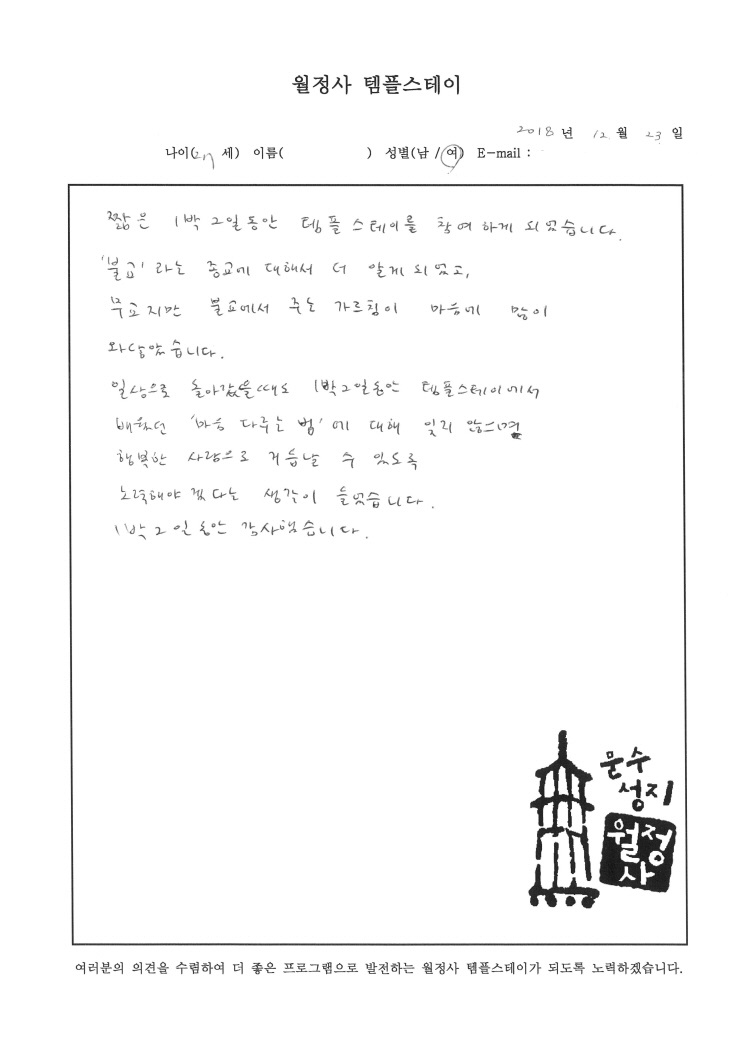 월정사 템플스테이
2018 년 12 월 23 일
나이(27 세) 이름( ) 성별(남 / 여) E-mail :
짧은 1박 2일동안 템플 스테이를 참여하게 되었습니다.
'불교' 라는 종교에 대해서 더 알게 되었고,
무교지만 불교에서 주는 가르침이 마음에 많이
와닿았습니다.
일상으로 돌아갔을때도 1박2일동안 템플스테이에서
배웠던 '마음 다루는 법'에 대해 잊지 않으며
행복한 사람으로 거듭날 수 있도록
노력해야 겠다는 생각이 들었습니다.
1박 2일동안 감사했습니다.
문수
성지
월정
사
여러분의 의견을 수렴하여 더 좋은 프로그램으로 발전하는 월정사 템플스테이가 되도록 노력하겠습니다.